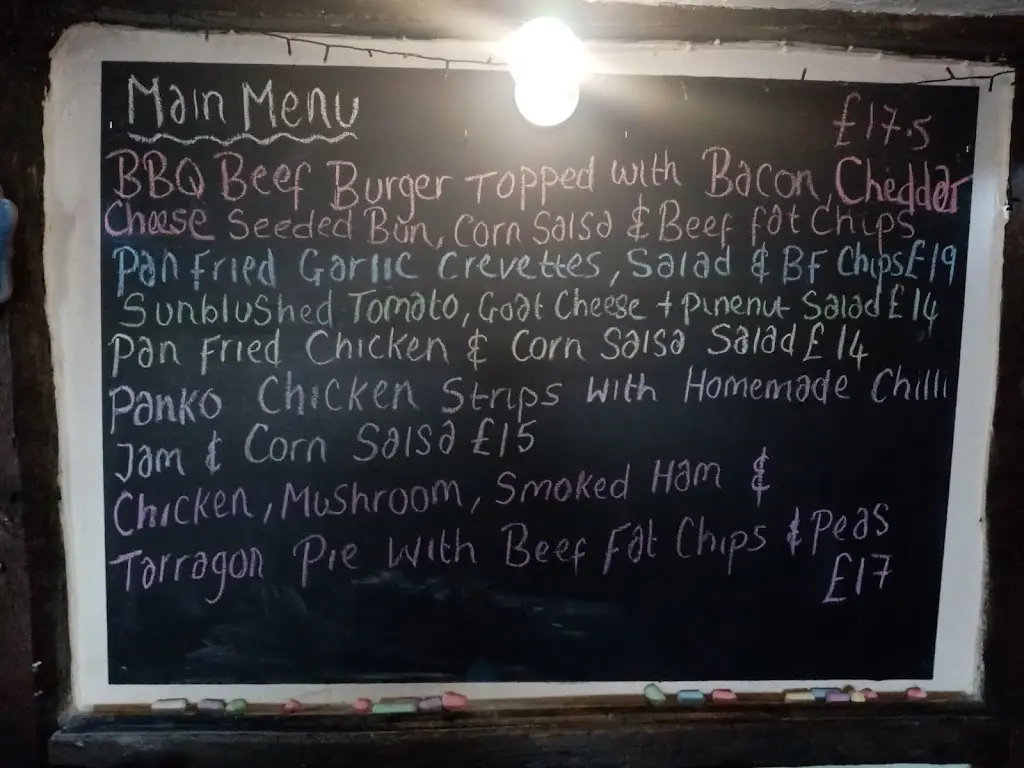 Main Menu
£17.5
BBQ Beef Burger Topped with Bacon, Cheddar
Cheese Seeded Bun, Corn Salsa & Beef fat Chips
Pan Fried Garlic Crevettes, Salad & BF Chips £19
Sunblushed Tomato, Goat Cheese + Pinenut Salad £14
Pan Fried Chicken & Corn Salsa Salad £14
Panko Chicken Strips With Homemade Chilli
Jam & Corn Salsa £15
Chicken, Mushroom, Smoked Ham &
Tarragon Pie With Beef Fat Chips & Peas
£17